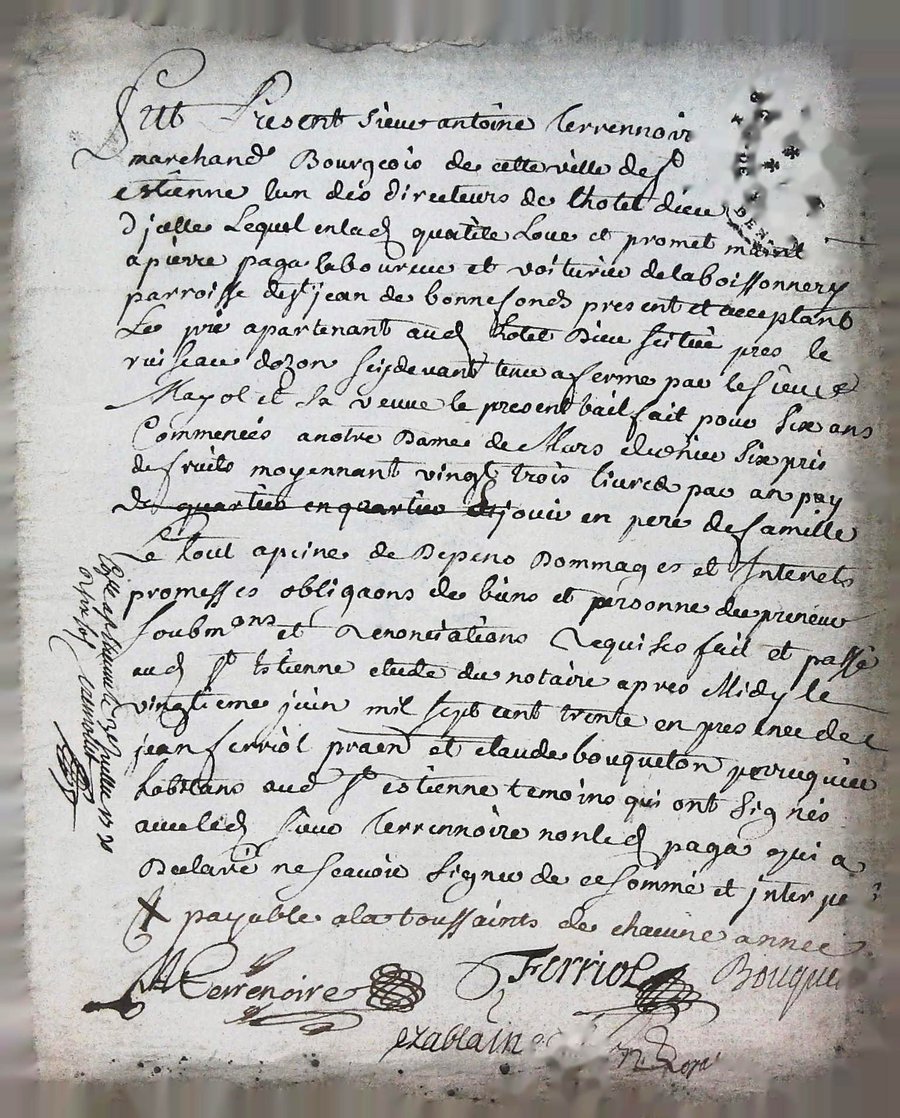 Fut Present sieur antoine Terrennoir
marchand Bourgeois de cette ville de st
estienne lun des directeurs de lhotel dieu
Djcelle Lequel qualité Loue et promet
a pierre paga laboureur et voiturier de la boissonnery
parroisse de st jean de bonnefonds present et acceptant
Le pré apartenant aud hotel Dieu scitué pres le
ruisseau dozon cydevant tenu a ferme par le sieur
Mayol et sa veuve le present bail fait pour six ans
Commencés a notre Dame de Mars dernier six pris
de fruits moyennant vingt trois livres par an pay
de quartier en quartier jouir en pere de famille
Le tout a peine de Depens Dommages et Interets
promesses obligaons de biens et personne du preneur
soubmons et Renonciations Requises fait et passé
aud st Estienne etude du notaire apres Midy le
vingtieme juin mil sept cent trente en presence de
jean ferriol praen et claude bouqueton perruquier
habitans aud st estienne temoins qui ont signés
avec led sieur Terrennoire non led paga qui a
Declaré ne scavoir signer de ce sommé et jnterpe
X payable a la toussaints de chacune année
Terrenoire Ferriol Bouque